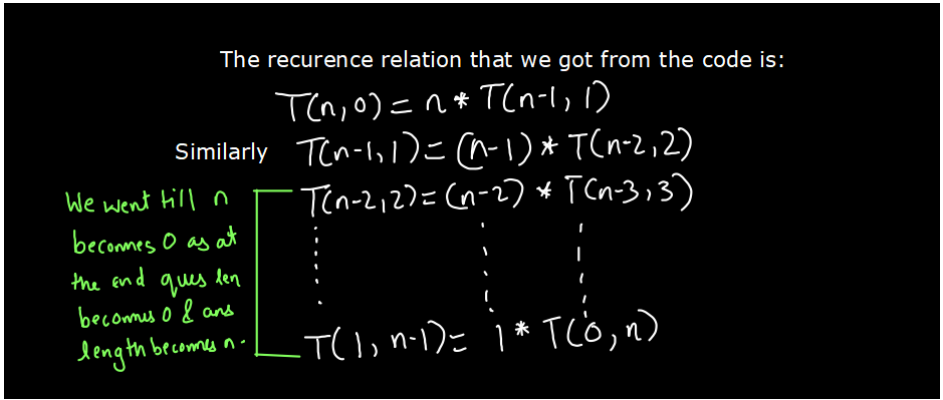 The recurence relation that we got from the code is:
T(n,0) = n * T(n-1, 1)
Similarly T(n-1,1) = (n-1) * T(n-2,2)
T(n-2,2) = (n-2) * T(n-3,3)
T(1, n-1) = 1 * T(0, n)
We went till n
becomes 0 as at
the end ques len
becomes 0 & ans
length becomes n.